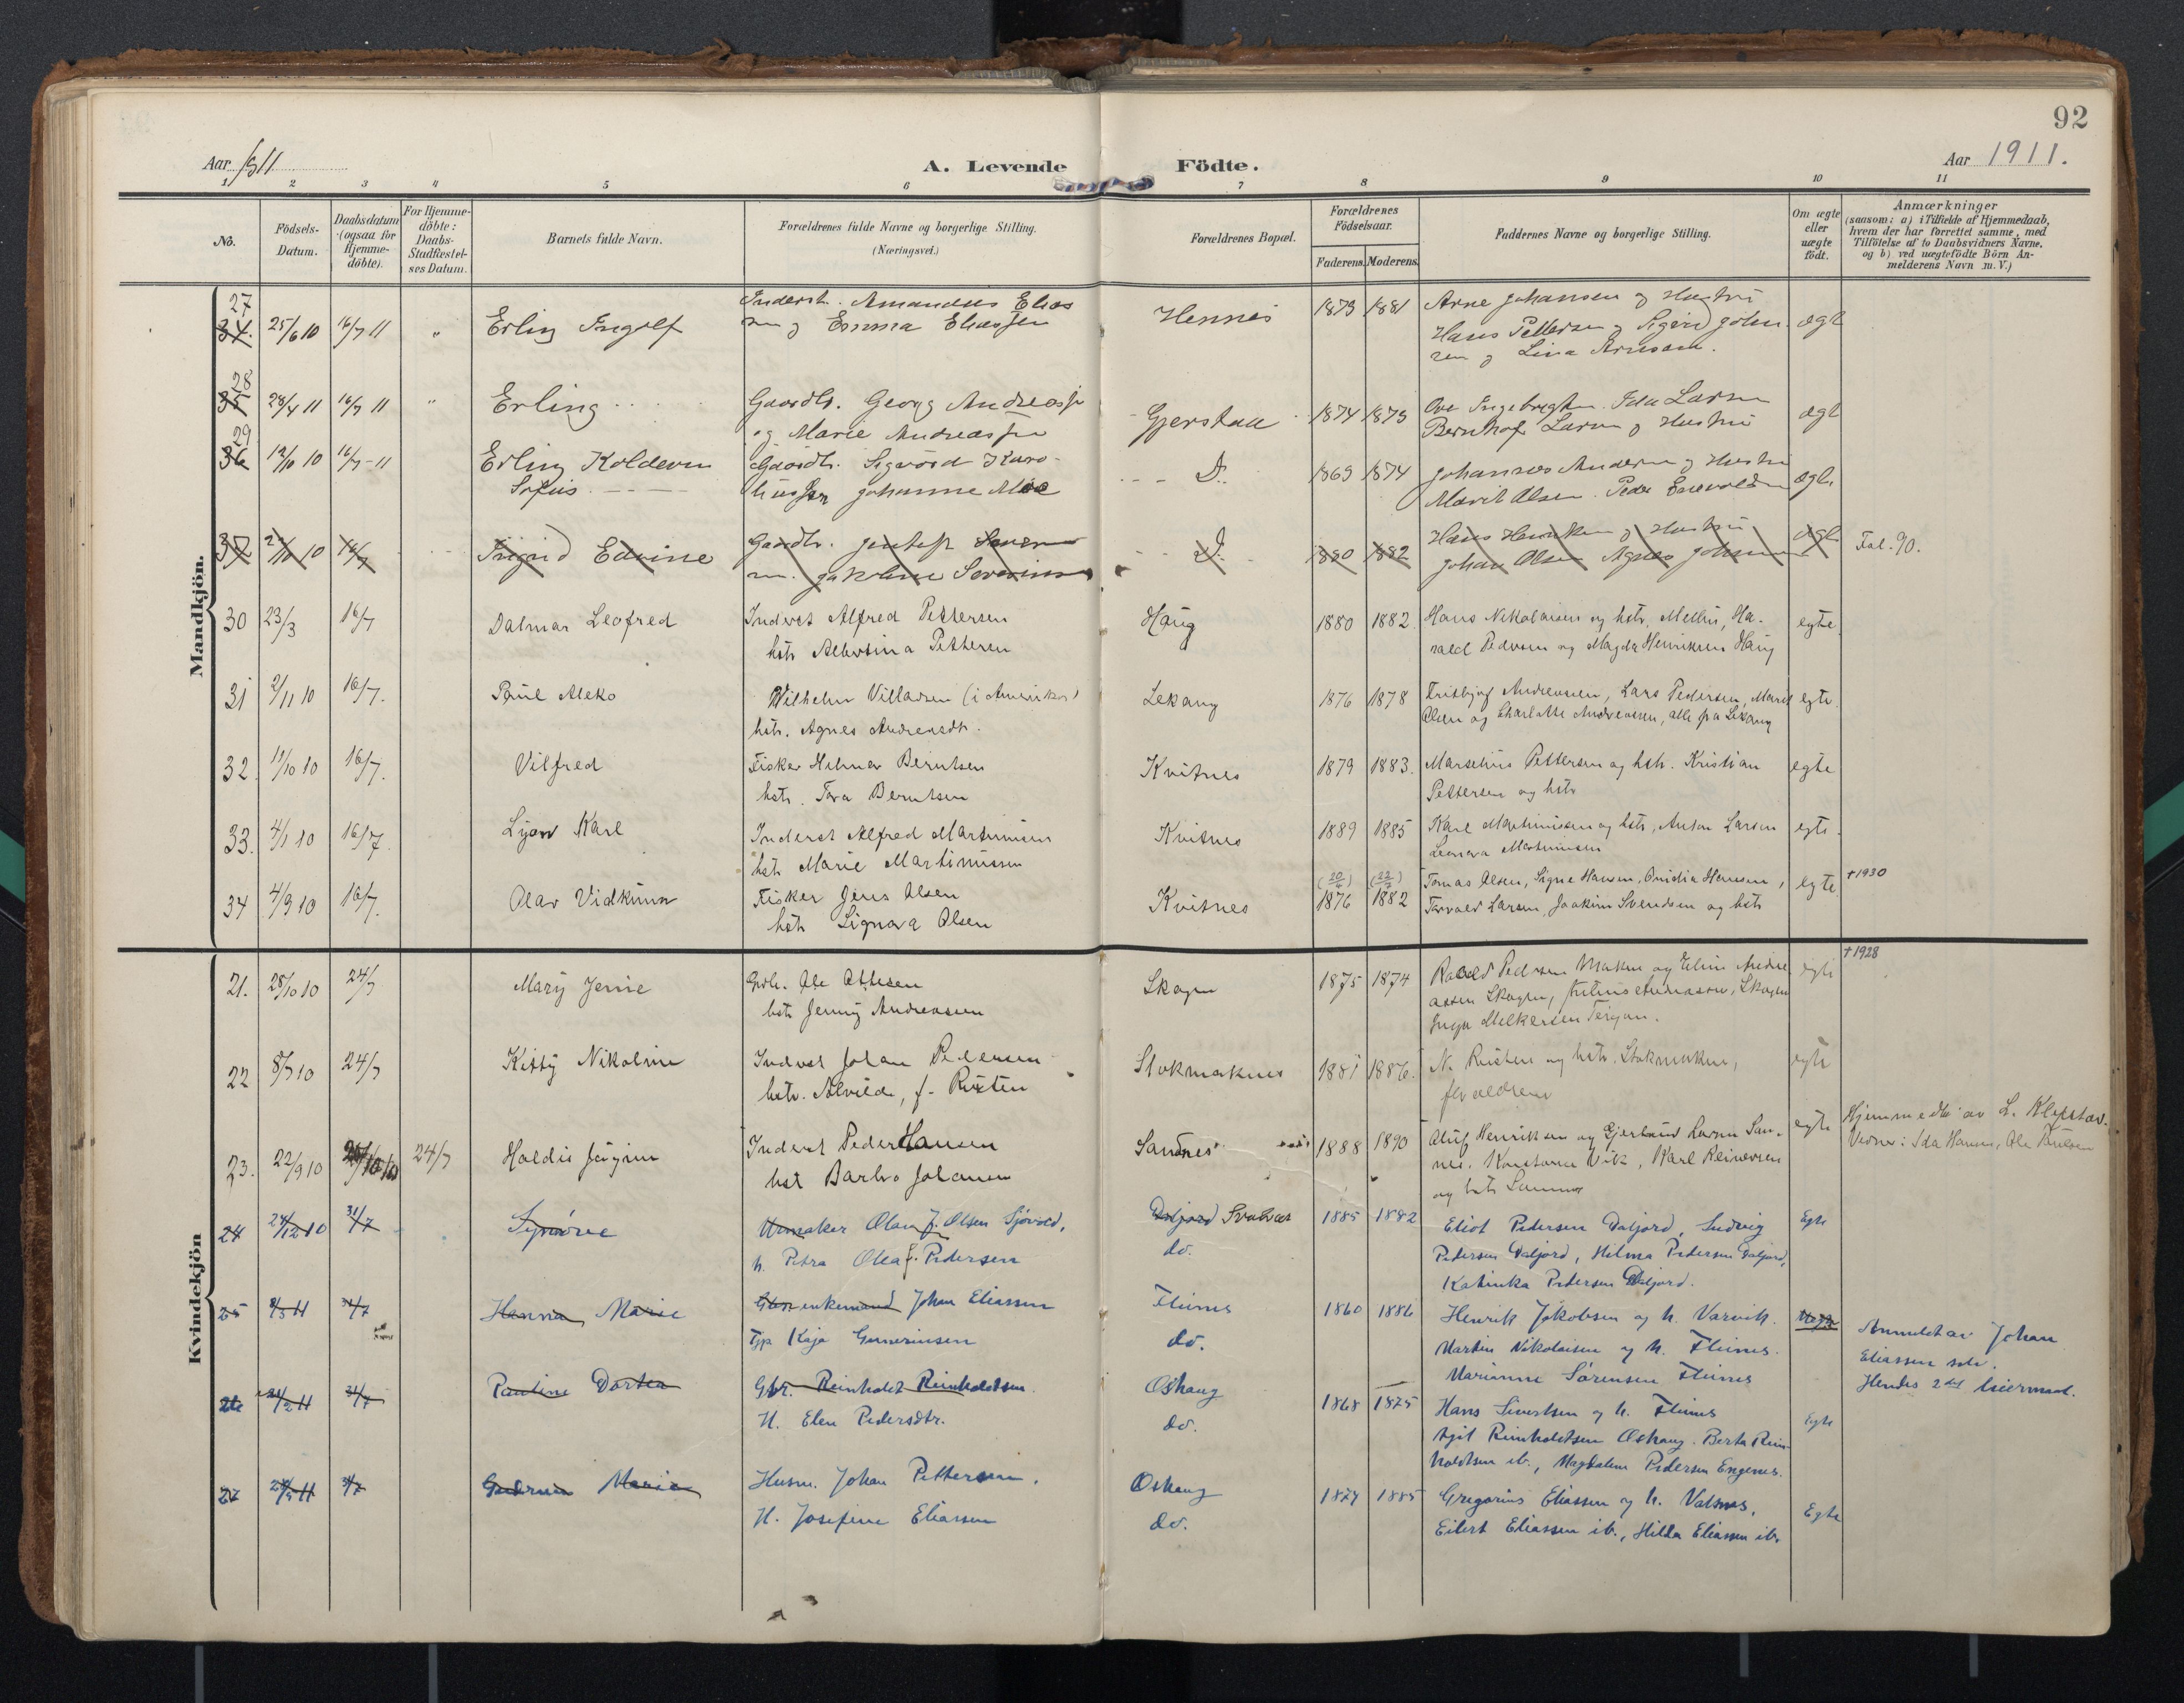 92
Aar 1911
A. Levende Födte.
Aar 1911.
1 2 3 4 5 6 7 8 9 10 11
No.
Födsels-
Datum.
Daabsdatum
(ogsaa for
Hjemme-
döbte).
For Hjemme-
döbte:
Daabs-
Stadfæstel-
ses Datum.
Barnets fulde Navn.
Forældrenes fulde Navne og borgerlige Stilling.
(Næringsvei.)
Forældrenes Bopæl.
Forældrenes
Födselsaar.
Faderens. Moderens.
Faddernes Navne og borgerlige Stilling.
Om ægte
eller
uægte
födt.
Anmærkninger
(saasom: a) i Tilfælde af Hjemmedaab,
hvem der har forrettet samme, med
Tilföielse af to Daabsvidners Navne,
og b) ved uægtefödte Börn An-
melderens Navn m. V.)
Mandkjön.
27
34. 25/6 10 16/7 11 " Erling Ingolf
Inderst. Amandus Elias
sen og Emma Eliassen
Hennes 1879 1881
Arne Johansen og Hustru
Hans Pettersen og Sigrid John
sen og Lina Arnesen.
ægt
28
35 28/4 11 16/7 11 " Erling
Gaardbr. Georg Andreasse
og Marie Andreassen
Gjerstad 1874 1879
Ove Ingebrigtsen. Ida Larsen
Bernhof Larsen og Hustru
ægt
29
36 12/10 10 16/7 - 11 Erling Koldevin
Sofus
Gaardbr. Sigvard Karo-
liussen Johanne Moe
D. 1869 1874
Johannes Andersen og Hustru
Marit Olsen. Peder Enevoldsen
ægt.
37 10 16/7 Ingrid Edvine
Gaardbr. Jentoft Severin
sen. Jakobine Severinsen
D. 1880 1882
Hans Henriksen og Hustru
Johan Olsen Agnes Johansen
ægt
Fol. 90.
30 23/3 16/7 Dalmar Leofred
Inderst Alfred Pettersen
hstr Albertina Pettersen
Haug 1880 1882
Hans Nikolaisen og hstr. Melbu, Ha-
rald Pedersen og Magda Henriksen Haug
egte
31 2/11 10 16/7. Paul Meko
Wilhelm Villadsen (i Amerika)
hstr. Agnes Andreasdtr.
Lekang 1876 1878
Fritjof Andreassen, Lars Pedersen, Marit
Olsen og Charlotte Andreassen, alle fra Lekang
egte.
32. 11/10 10 16/7. Vilfred
Fisker Hilmar Berntsen
hstr. Tora Berntsen
Kvitnes 1879 1883.
Marselius Pettersen og hstr. Kristian
Pettersen og hstr
egte
33. 4/1 10 16/7. Lyon Karl
Inderst Alfred Martinusen
hstr Marie Martinussen
Kvitnes 1889 1885
Karl Martinussen og hstr, Anton Larsen
Leonora Martinusen
egte.
34 4/9 10 16/7. Olav Vidkunn
Fisker Jens Olsen
hstr Signora Olsen
Kvitnes 1876 1882
Tomas Olsen, Signe Hansen, Ovidia Hansen,
Torvald Larsen, Joakim Svendsen og hstr
egte
+1930
Kvindekjön
21. 28/10 10 24/7 Mary Jenie
Grdbr. Ole Ottesen
hstr Jenny Andreassen
Skogen 1875 1874
Pedersen Maken og Elise Andre
assen Skogen, Skogen
Inga Melkersen
egte
+1928
22 8/7 10 24/7 Kitty Nikoline
Inderst Johan Pedersen
hstr. Alvilde, f. Risten
Stokmarknes 1881 1886.
N. Risten og hstr. Stokmarknes,
forældrene
egte
23. 22/9 10 10/10 24/7 Haldis Jørgine
Inderst Peder Hansen
hstr Barbro Johansen
Sandnes 1888 1890
Henriksen og Gjertrud Larsen San-
nes. Konstanse Vik, Karl Reinertsen
og hstr Sannes
egte
Hjemmedbt av L. Klokstad.
Vidner: Ida Hansen, Ole Paulsen
24 24/12 10 31/7 Synnöve
Urmaker Olav J. Olsen Sjövold,
h. Petra Olea f. Pedersen
Daljord Svolvær
do.
1885 1882
Eliot Pedersen Daljord, Ludvig
Pedersen Daljord, Hilma Pedersen Daljord,
Katinka Pedersen Daljord.
Egte
25 8/3 11 31/7 Hanna Marie
enkemand Johan Eliassen
Tjp Kaja Gunerinsen
Flines
do.
1860 1886
Henrik Jakobsen og h. Varvik.
Martin Nikolaisen og h. Flines.
Marianne Sörensen Flines
Uegte
Anmeldt av Johan
Eliassen selv.
Hendes 2det leiermaal.
26 21/2 11 31/7 Pauline Dortea
Gbr. Reinholdt Reinholdtsen
H. Elen Pedersdtr.
Oshaug
do.
1868 1875
Hans Sivertsen og h. Flines
Egil Reinholdtsen Oshaug. Berta Rein-
holdtsen ib., Magdalene Pedersen Engenes.
Egte
27 11 31/7 Gudrun Marie
Husm. Johan Pettersen.
H. Josefine Eliassen
Oshaug
do.
1874 1885
Gregorius Eliassen og h. Valsnes,
Eilert Eliassen ib., Hilda Eliassen ib.
Egte